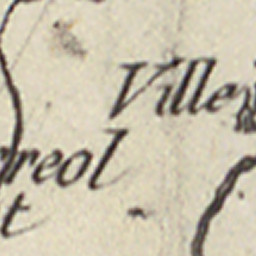 Ville
reol
t